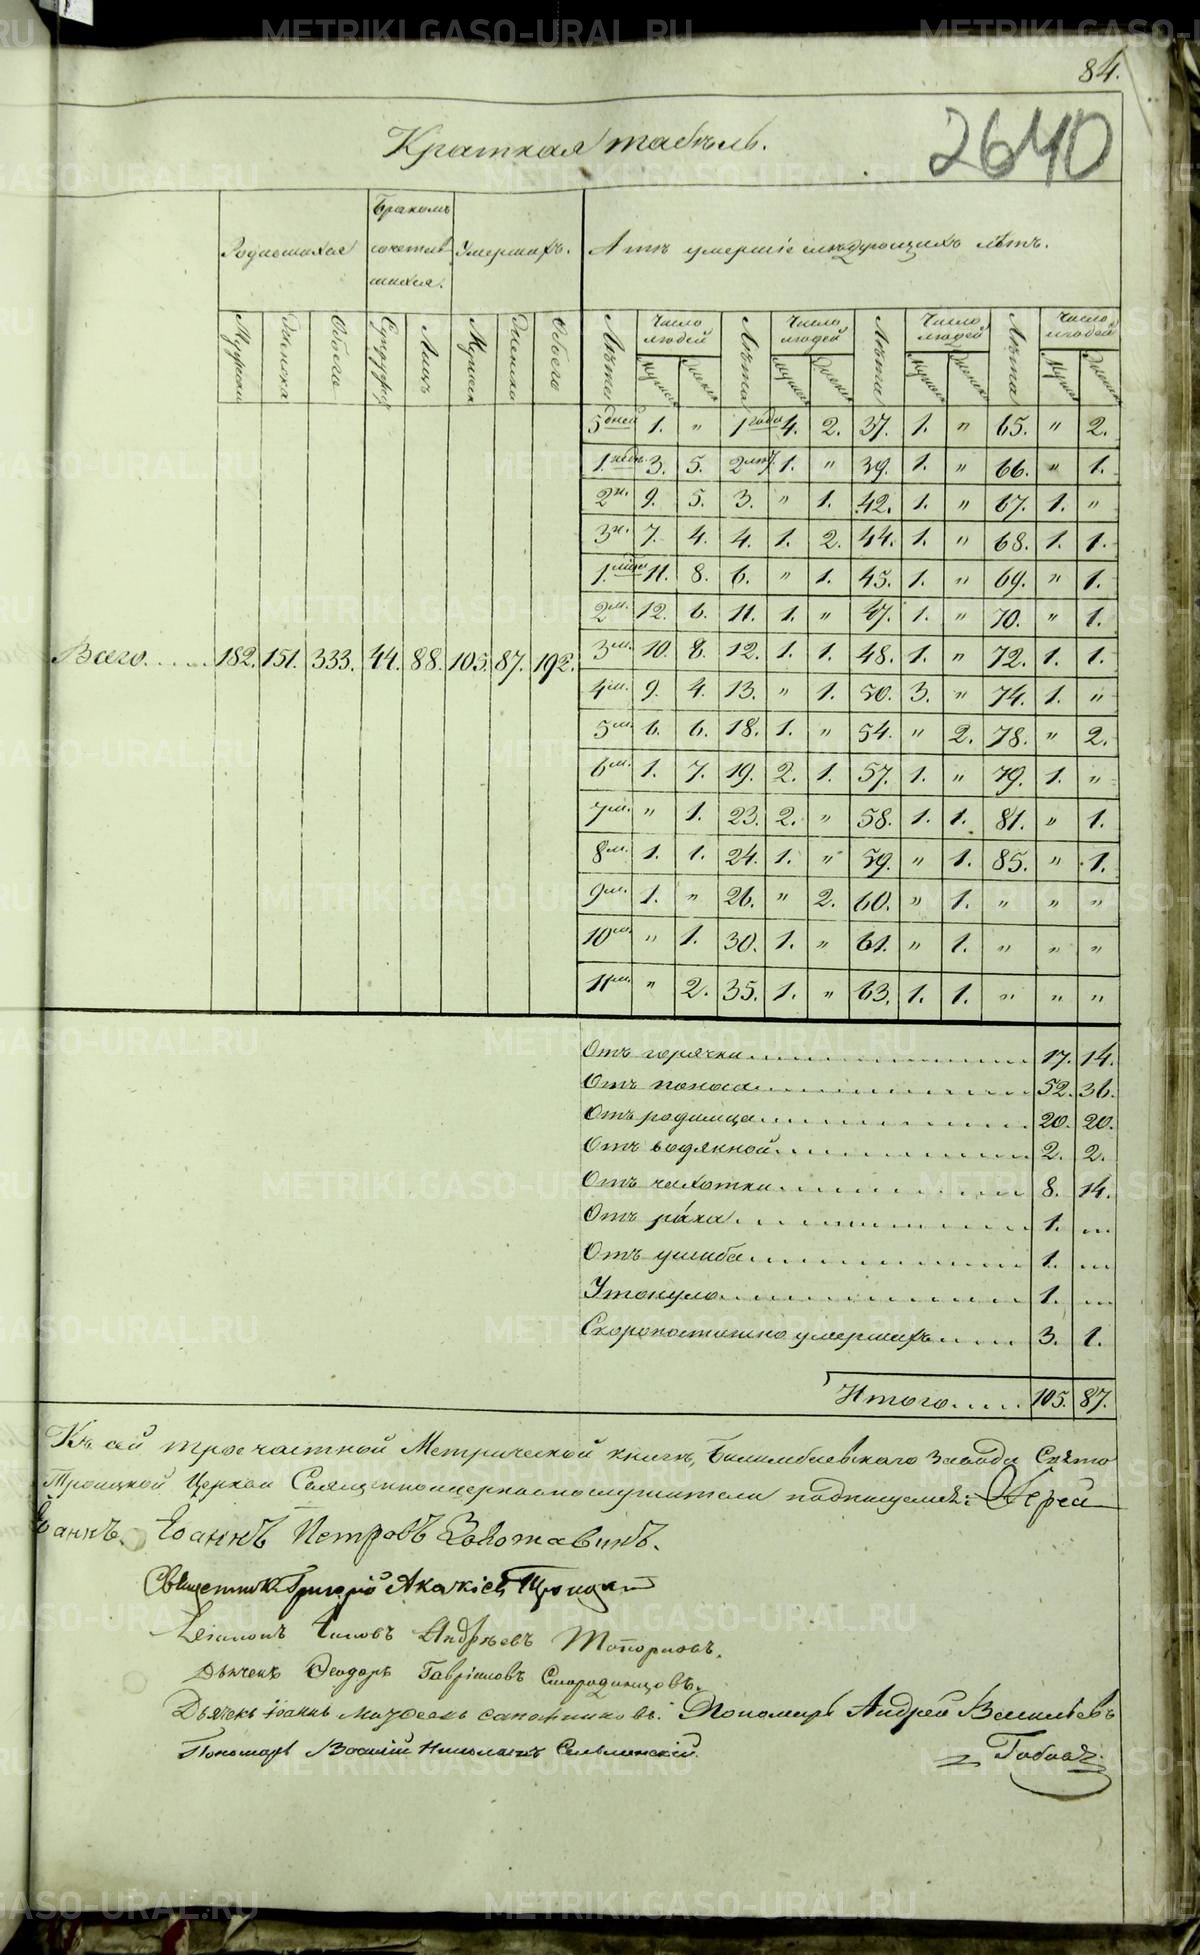 84.
2640
Краткая табѣль.
Родившихся
Бракомъ сочетавшихся.
Умершихъ.
А тѣ умершіе слѣдующихъ лѣтъ.
Мужеска Женска Обоего Супружъ Лицъ Мужеска Женска Обоего Лѣта Число людей Лѣта Число людей Лѣта Число людей Лѣта Число людей
Мужеска Женска Мужеска Женска Мужеска Женска Мужеска Женска
5 дней 1. " 1 года 4. 2. 37. 1. " 65. " 2.
1. нед. 3. 5. 2 лѣт. 1. " 39. 1. " 66. " 1.
2 н. 9. 5. 3. " 1. 42. 1. " 67. 1. "
3 н. 7. 4. 4. 1. 2. 44. 1. " 68. 1. 1.
1. мѣся 11. 8. 6. " 1. 45. 1. " 69. " 1.
2 м. 12. 6. 11. 1. " 47. 1. " 70. " 1.
Всего..... 182. 151. 333. 44. 88. 105. 87. 192. 3 м. 10. 8. 12. 1. 1. 48. 1. " 72. 1. 1.
4 м. 9. 4. 13. " 1. 50. 3. " 74. 1. "
5 м. 6. 6. 18. 1. " 54. " 2. 78. " 2.
6 м. 1. 7. 19. 2. 1. 57. 1. " 79. 1. "
7 м. " 1. 23. 2. " 58. 1. 1. 81. " 1.
8 м. 1. 1. 24. 1. " 59. " 1. 85. " 1.
9 м. 1. " 26. " 2. 60. " 1. " " "
10 м. " 1. 30. 1. " 61. " 1. " " "
11 м. " 2. 35. 1. " 63. 1. 1. " " "
Отъ горячки 17. 14.
Отъ поноса 52. 36.
Отъ родимца 20. 20.
Отъ водяной 2. 2.
Отъ чахотки 8. 14.
Отъ рака 1. ...
Отъ ушиба 1. ...
Утонуло 1. ...
Скоропостижно умершихъ 3. 1.
Итого..... 105. 87.
Къ сей троечастной Метрической книгѣ, Билимбаевскаго завода Свято
Троицкой Церкви Священноцерковнослужители подписуемся: Іерей
Іоаннъ. Іоаннъ Петровъ Золотавинъ.
Священникъ Григорій Акакіевъ
Діаконъ Андрѣевъ Топорковъ.
Дьячекъ Ѳеодоръ Гавріиловъ Смородинцовъ.
Дьячекъ Іоаннъ Моѵсеевъ Сапожниковъ. Пономарь Андрей Васильевъ
Пономарь Василій Николаевъ Сельменскій.
METRIKI.GASO-URAL.RU